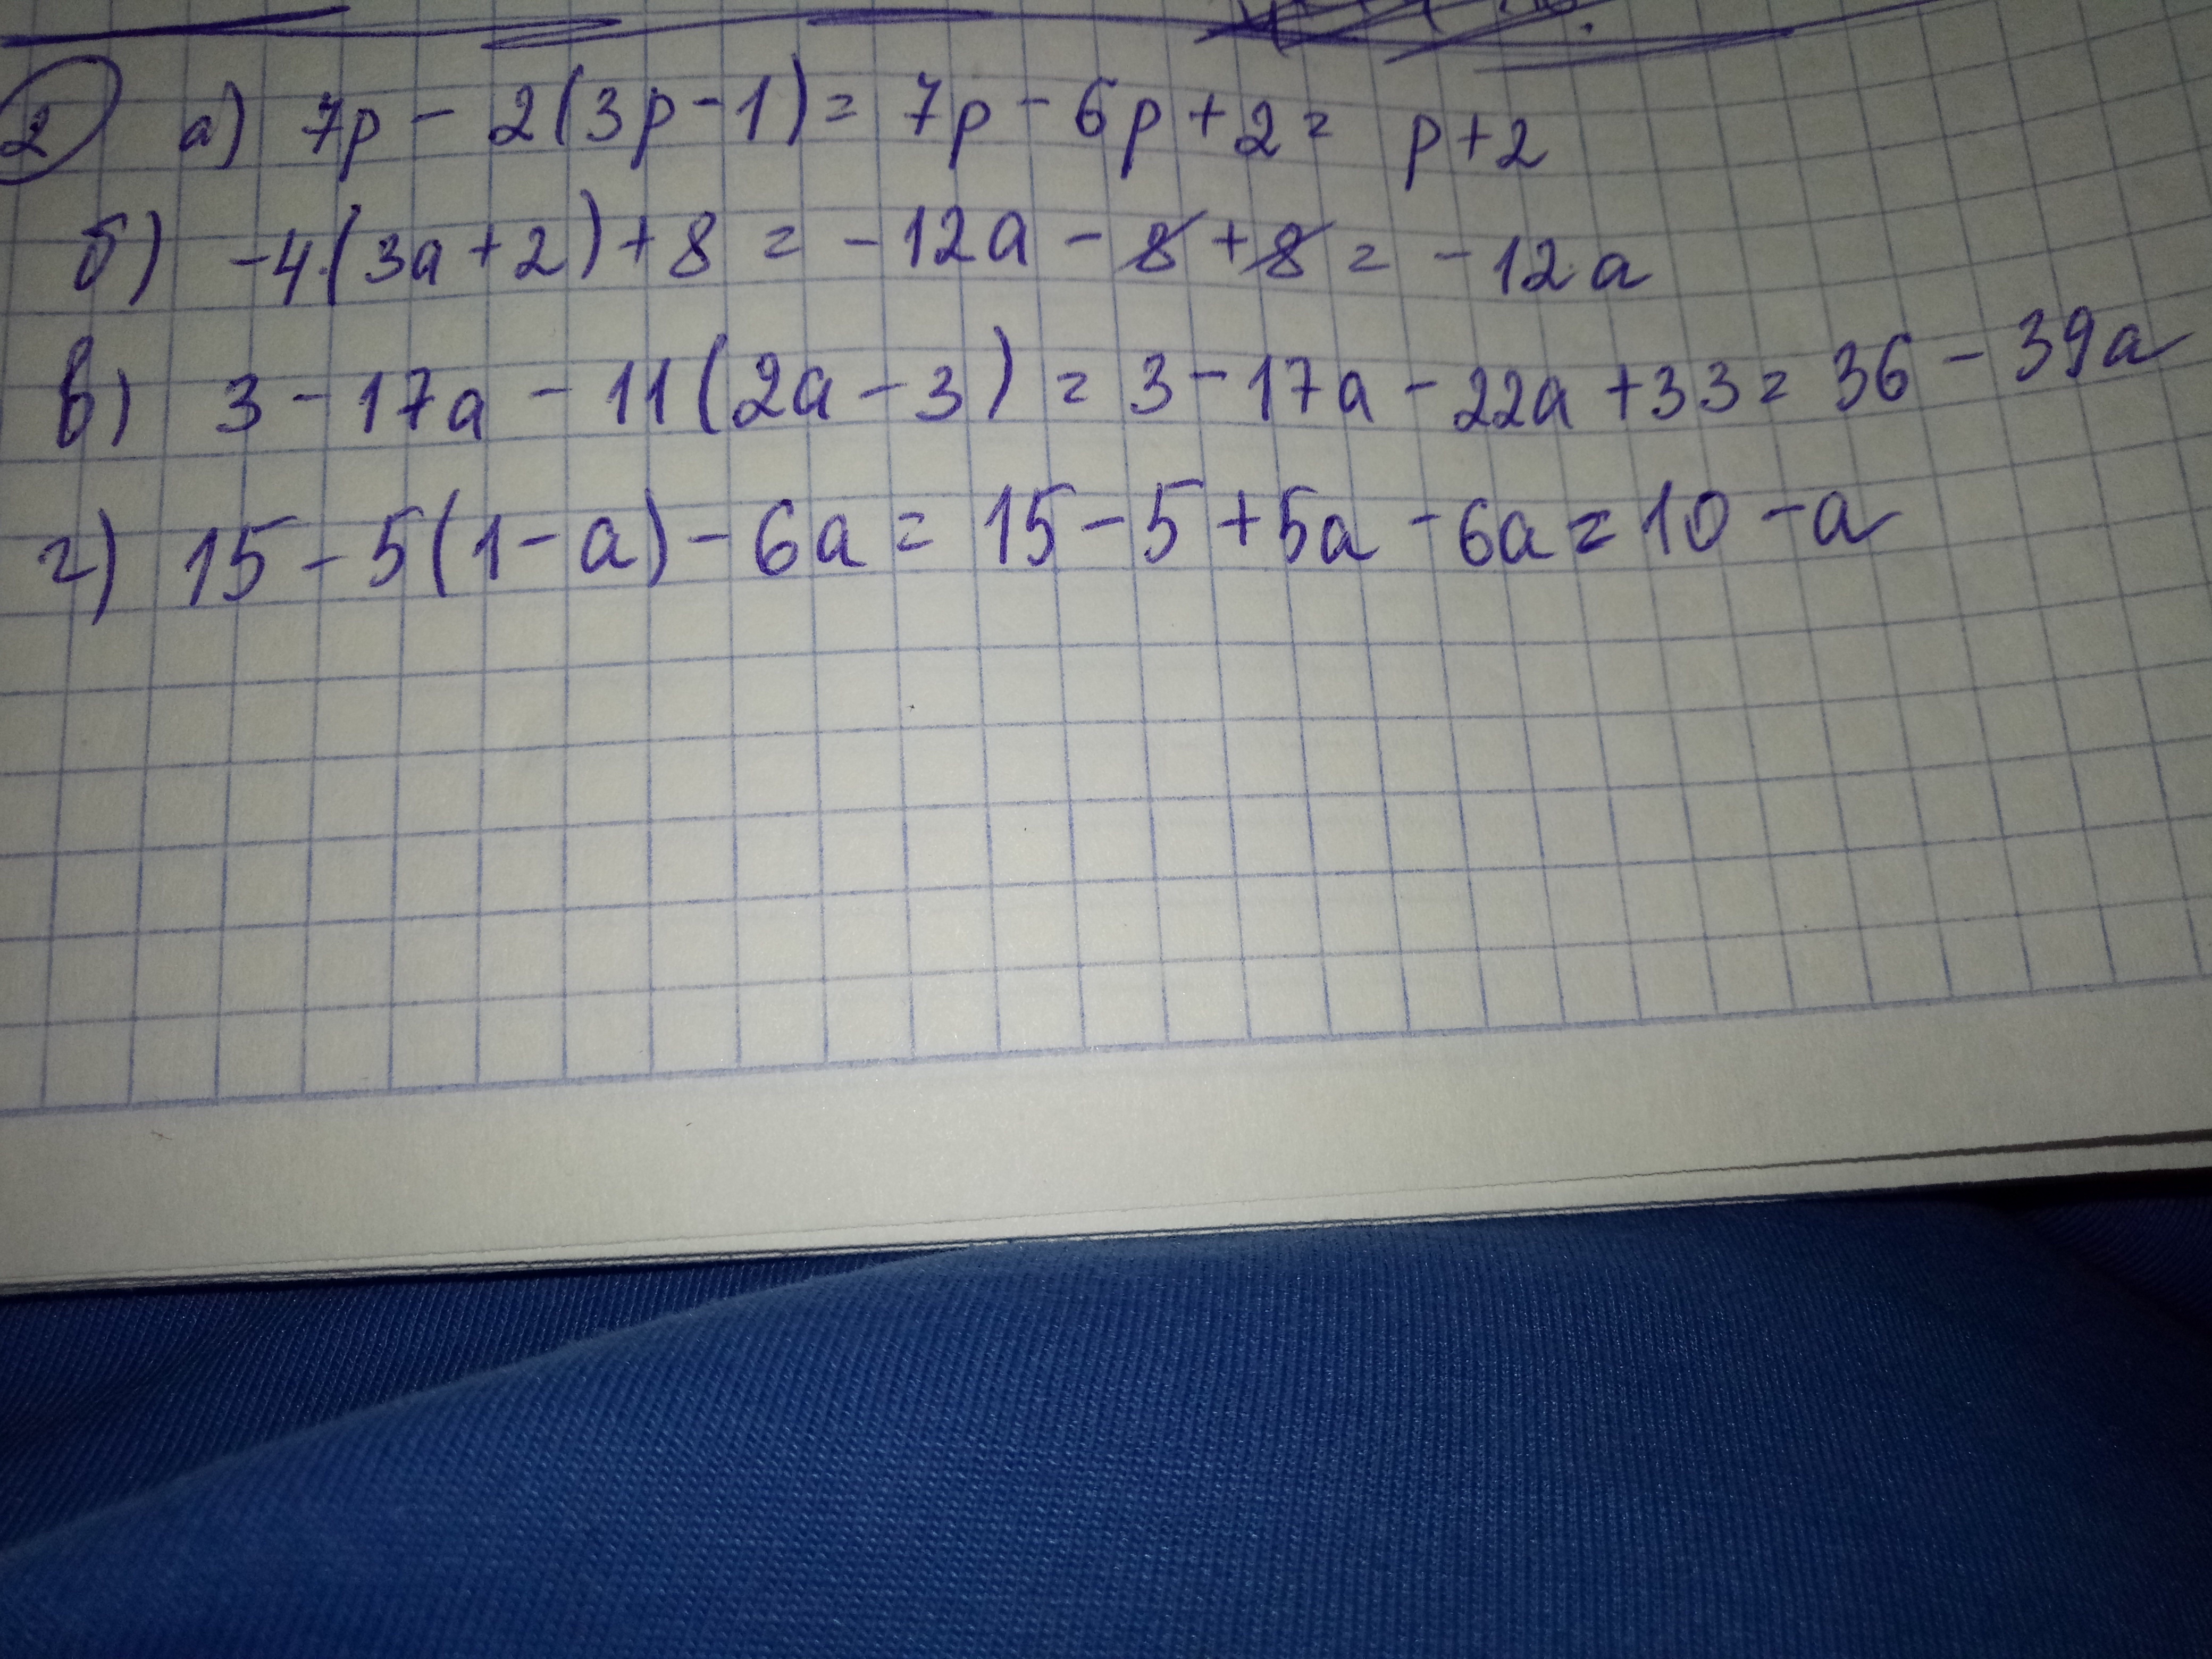 2 а) 7p - 2(3p-1) = 7p - 6p + 2 = p + 2
б) -4·(3a+2)+8 = -12a - 8 + 8 = -12a
в) 3 - 17a - 11(2a-3) = 3 - 17a - 22a + 33 = 36 - 39a
г) 15 - 5(1-a) - 6a = 15 - 5 + 5a - 6a = 10 - a